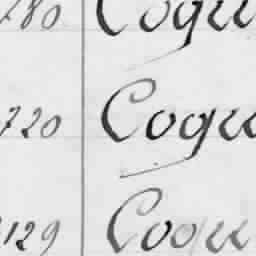 780 Coqu
720 Coqu
129 Coqu